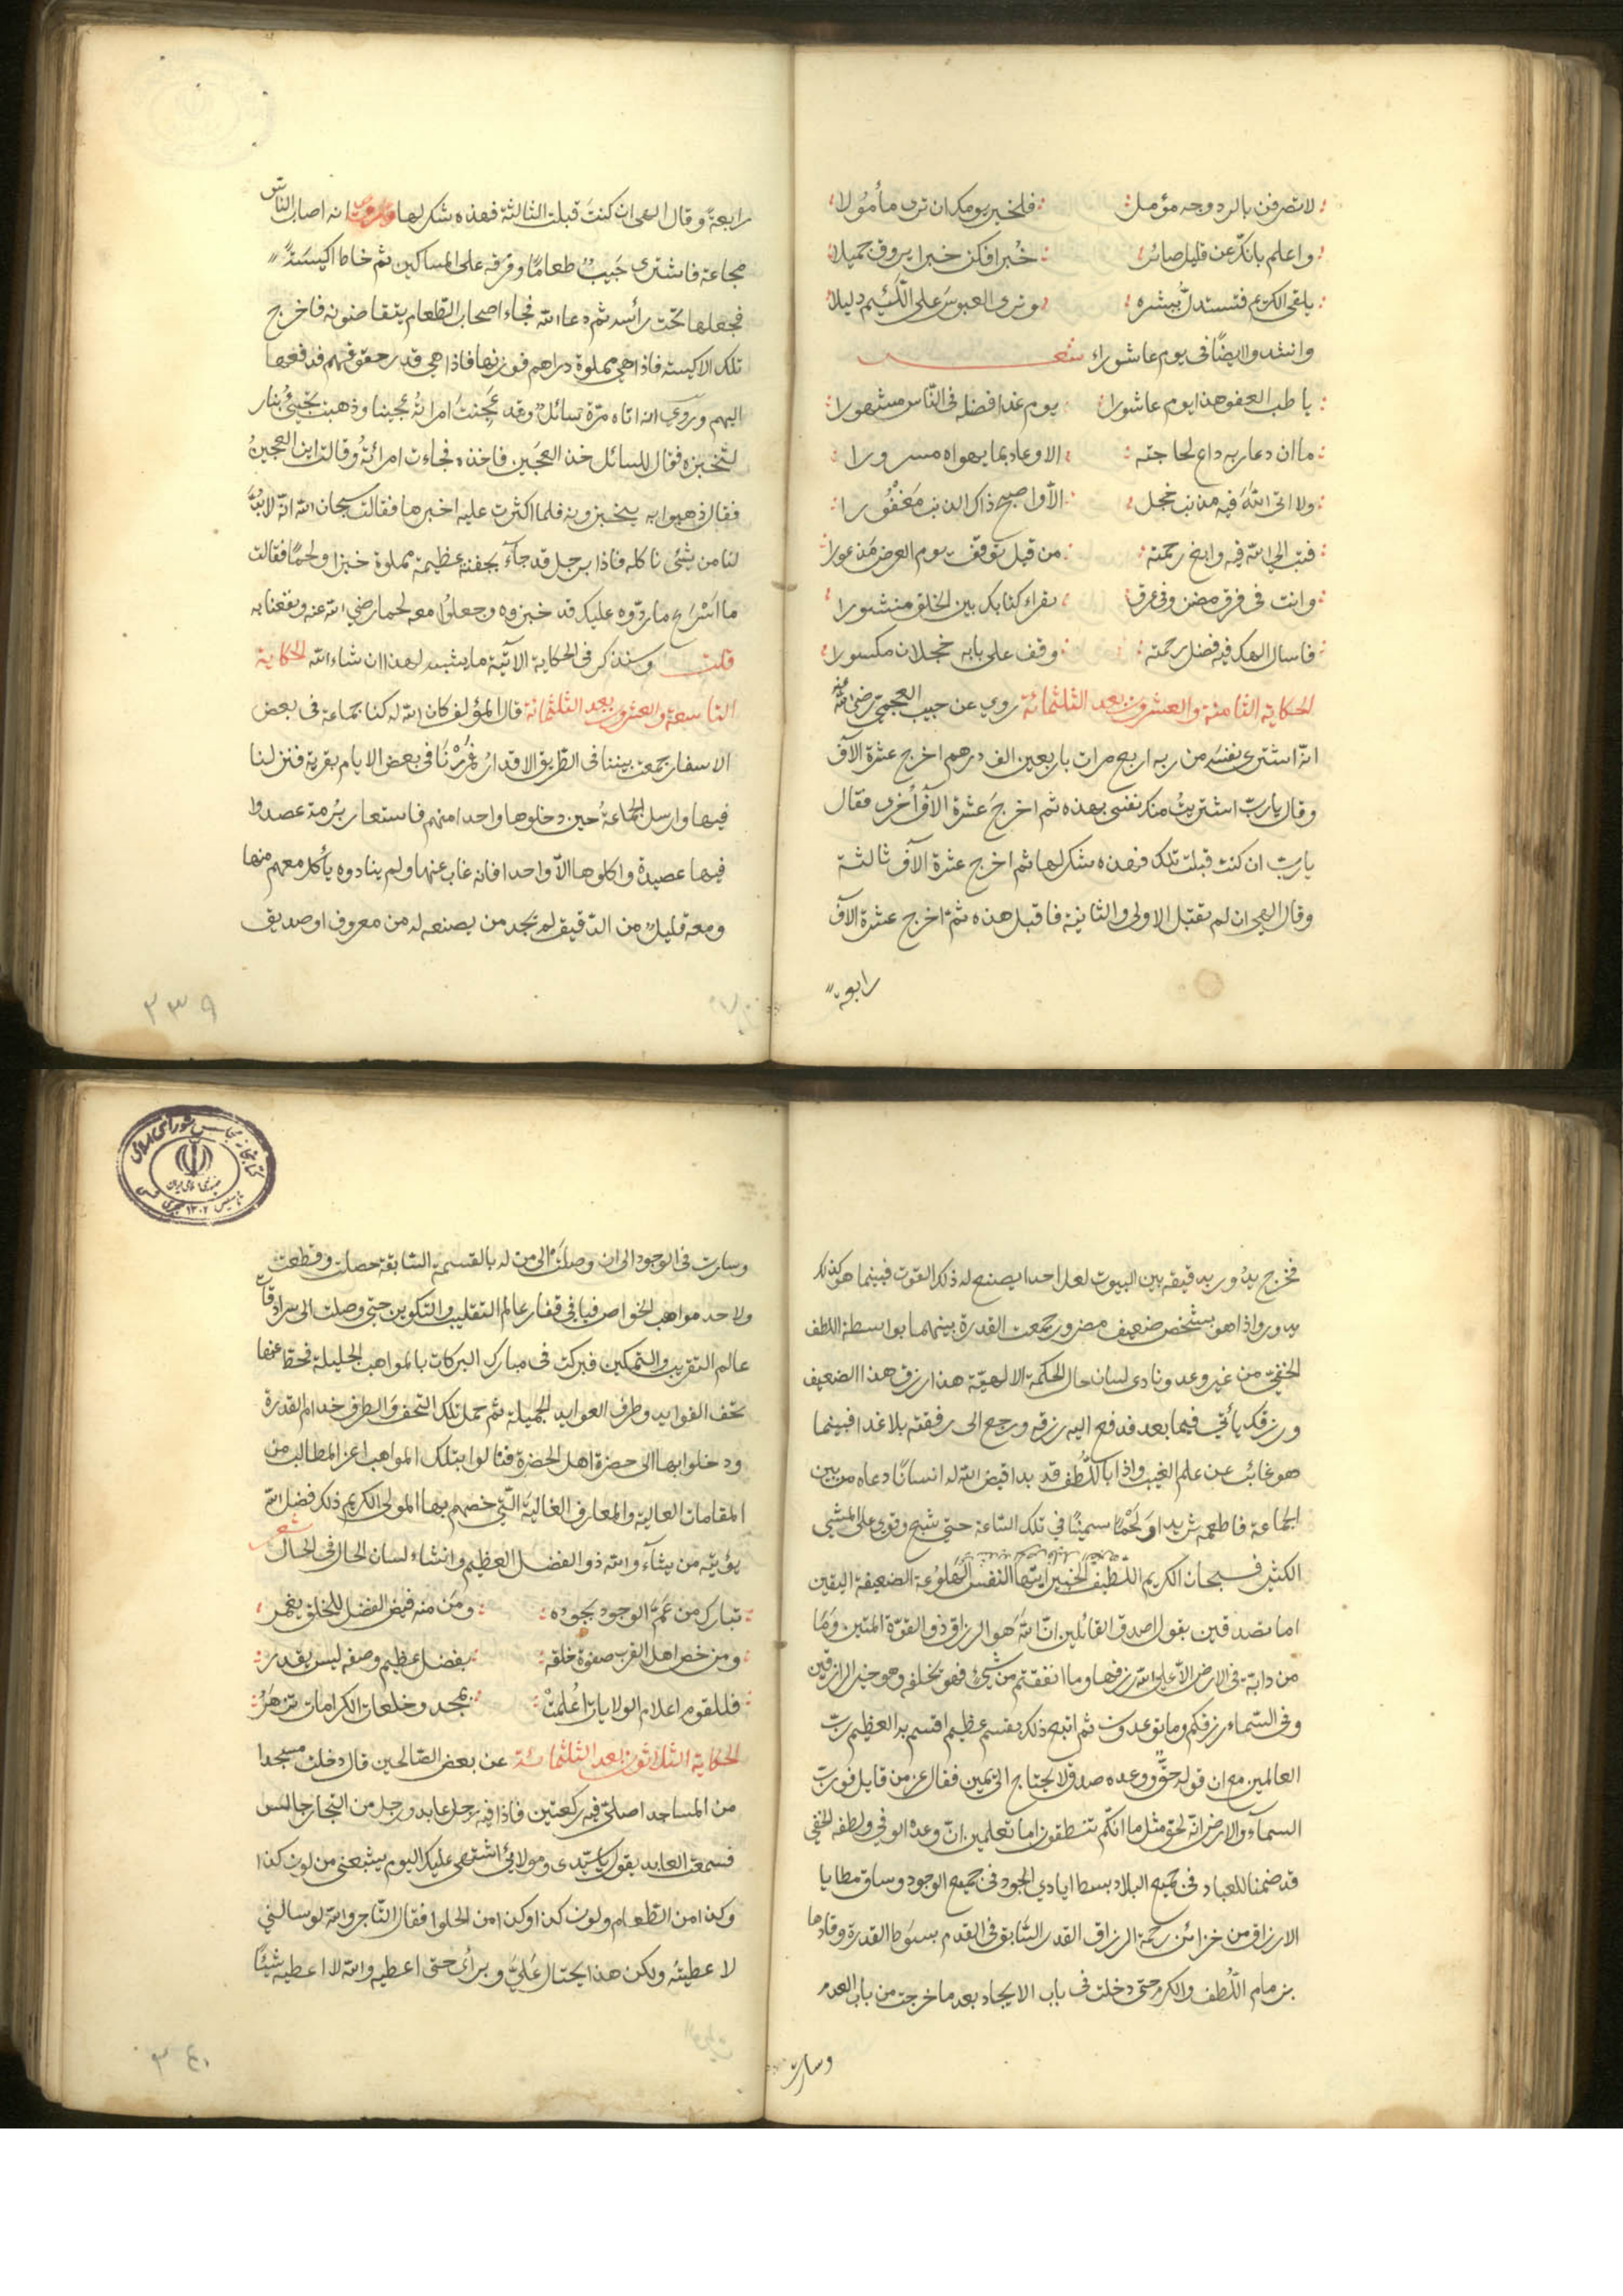 لا تصرفن بالرد وجه مؤمل فلخير يومك ان ترى مأمولا
واعلم بانك عن قليل صائر خبرا فكن خبرا يروق جميلا
يلقى الكريم فتستدل ببشره وترى العبوس على اللئيم دليلا
وانشدوا ايضا في يوم عاشوراء شعر
يا طب العفو هذا يوم عاشورا يوم غدا فضله في الناس مشهورا
ما ان دعا ربه داع لحاجته الا وعاد بما يهواه مسرورا
ولا اتى الله فيه مذنب خجل الا واصبح ذاك الذنب مغفورا
فتب الى الله فيه وارج رحمته من قبل توقف يوم العرض مذعورا
وانت في فرق مضن وفي عرق يقراء كتابك بين الخلق منشورا
فاسال الهك فيه فضل رحمته وقف على بابه خجلان مكسورا
الحكاية الثامنة والعشرون بعد الثلثمائة روي عن حبيب العجمي رضي الله عنه
انه اشترى نفسه من ربه اربع مرات باربعين الف درهم اخرج عشرة الآف
وقال يا رب اشتريت منك نفسي بهذه ثم اخرج عشرة الآف أخرى فقال
يا رب ان كنت قبلت تلك فهذه شكر لها ثم اخرج عشرة الآف ثالثة
وقال الهي ان لم تقبل الاولى والثانية فاقبل هذه ثم اخرج عشرة الآف
رابعة
رابعة وقال الهي ان كنت قبلت الثالثة فهذه شكر لها وروي انه اصاب الناس
مجاعة فاشترى حبيب طعاما وفرقه على المساكين ثم خاط اكيسة
فجعلها تحت رأسه ثم دعا الله فجاء اصحاب الطعام يتقاضونه فاخرج
تلك الاكيسة فاذا هي مملوة دراهم فوزنها فاذا هي قدر حقوقهم فدفعها
اليهم وروي انه اتاه مرة سائل وقد عجنت امراته عجينا وذهبت تجيئ بنار
لتخبزه فقال للسائل خذ العجين فاخذه فجاءت امرأته وقالت اين العجين
فقال ذهبوا به يخبزونه فلما اكثرت عليه اخبرها فقالت سبحان الله انه لا بد
لنا من شئ ناكله فاذا برجل قد جآء بجفنة عظيمة مملوة خبزا ولحما فقالت
ما اسرع ما ردوه عليك قد خبزوه وجعلوا معه لحما رضي الله عنه ونفعنا به
قلت وسنذكر في الحكاية الاتية ما يشبه لهذا ان شاء الله الحكاية
التاسعة والعشرون بعد الثلثمائة قال المؤلف كان الله له كنا جماعة في بعض
الاسفار جمعت بيننا في الطريق الاقدار فمررنا في بعض الايام بقرية فنزلنا
فيها وارسل الجماعة حين دخلوها واحدا منهم فاستعار برمة عصدوا
فيها عصيدة واكلوها الا واحدا فانه غاب عنها ولم ينادوه يأكل معهم منها
ومعه قليل من الدقيق لم يجد من يصنعه له من معروف او صديق
٢٣٩
فخرج يدور بدقيقه بين البيوت لعل احدا يصنع له ذلك القوت فبينما هو كذلك
يدور واذا هو بشخص ضعيف مضرور جمعت القدرة بينهما بواسطة اللطف
الخفي من غير وعد ونادى لسان حال الحكمة الالهية هذا رزق هذا الضعيف
ورزقك يأتي فيما بعد فدفع اليه رزقه ورجع الى رفقته بلا غدا فبينما
هو غائب عن علم الغيب واذا باللطف قد بدا قيض الله له انسانا دعاه من بين
الجماعة فاطعمه ثريدا ولحما سمينا في تلك الساعة حتى شبع وقوي على المشي
الكثير فسبحان الكريم اللطيف الخبير ايتها النفس الهلوعة الضعيفة اليقين
اما تصدقين بقول اصدق القائلين ان الله هو الرزاق ذو القوة المتين وما
من دابة في الارض الا على الله رزقها وما انفقتم من شئ فهو يخلفه وهو خير الرازقين
وفي السماء رزقكم وما توعدون ثم اتبع ذلك بقسم عظيم اقسم به العظيم رب
العالمين مع ان قوله حق ووعده صدق لا يحتاج الى يمين فقال عز من قايل فورب
السمآء والارض انه لحق مثل ما انكم تنطقون اما تعلمين ان وعده الوفي ولطفه الخفي
قد ضمنا للعباد في جميع البلاد بسط ايادي الجود في جميع الوجود وساق مطايا
الارزاق من خزائن رحمة الرزاق القدر السابق في القدم بسوط القدرة وقادها
بزمام اللطف والكرم حتى دخلت في باب الايجاد بعد ما خرجت من باب العدم
وسارت
وسارت في الوجود الى ان وصلت الى من له بالقسمة السابقة حصلت وقطعت
ولاحد مواهب الخواص فيافي قفار عالم التقليب والتكوين حتى وصلت الى سرادقات
عالم التقريب والتمكين فبركت في مبارك البركات بالمواهب الجليلة فحط عنها
تحف الفوايد وطرف العوايد الجميلة ثم حمل تلك التحف والطرف خدام القدرة
ودخلوا بها الى حضرة اهل الحضرة فنالوا بتلك المواهب اعز المطالب من
المقامات العالية والمعارف الغالية التي خصهم بها المولى الكريم ذلك فضل الله
يؤتيه من يشآء والله ذو الفضل العظيم وانشاء لسان الحال في الحال شعر
تبارك من عم الوجود بجوده ومن منه فيض الفضل للخلق يغمر
ومن خص اهل القرب صفوة خلقه بفضل عظيم وصفه ليس يقدر
فللقوم اعلام الولايات اعلمت بمجد وخلعات الكرامات تزهر
الحكاية الثلاثون بعد الثلثمائة عن بعض الصالحين قال دخلت مسجدا
من المساجد اصلي فيه ركعتين فاذا فيه رجل عابد ورجل من التجار جالس
فسمعت العابد يقول يا سيدي ومولائي اشتهى عليك اليوم يشبعني من لون كذا
وكذا من الطعام ولون كذا وكذا من الحلوا فقال التاجر والله لو سالني
لاعطيته ولكن هذا يحتال علي ويرائ حتى اعطيه والله لا اعطيه شيئا
٣٤٠
کتابخانه مجلس شورای اسلامی
جمهوری اسلامی ایران
تاسیس ۱۳۰۲